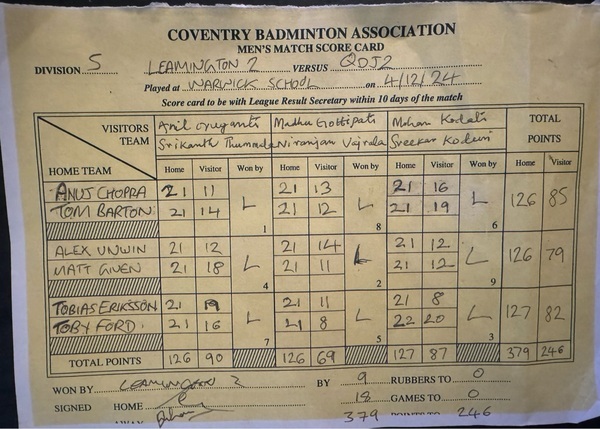 COVENTRY BADMINTON ASSOCIATION
MEN'S MATCH SCORE CARD
DIVISION 5 LEAMINGTON 2 VERSUS QOJ2
Played at WARWICK SCHOOL on 4/12/24
Score card to be with League Result Secretary within 10 days of the match
VISITORS TEAM Anil Madhu Gottipati Mohan TOTAL POINTS
Srikanth Thummada Niranjan Vajrala Sreekar
HOME TEAM Home Visitor Won by Home Visitor Won by Home Visitor Won by Home Visitor
ANUJ CHOPRA 21 11 L 21 13 L 21 16 L 126 85
TOM BARTON 21 14 1 21 12 8 21 19 6
ALEX UNWIN 21 12 L 21 14 L 21 12 L 126 79
MATT GIVEN 21 18 4 21 11 2 21 12 9
TOBIAS ERIKSSON 21 L 21 11 L 21 8 L 127 82
TOBY FORD 21 16 7 21 8 5 22 20 3
TOTAL POINTS 126 90 126 69 127 87 379 246
WON BY LEAMINGTON 2 BY 9 RUBBERS TO 0
SIGNED HOME 18 GAMES TO 0
379 POINTS TO 246